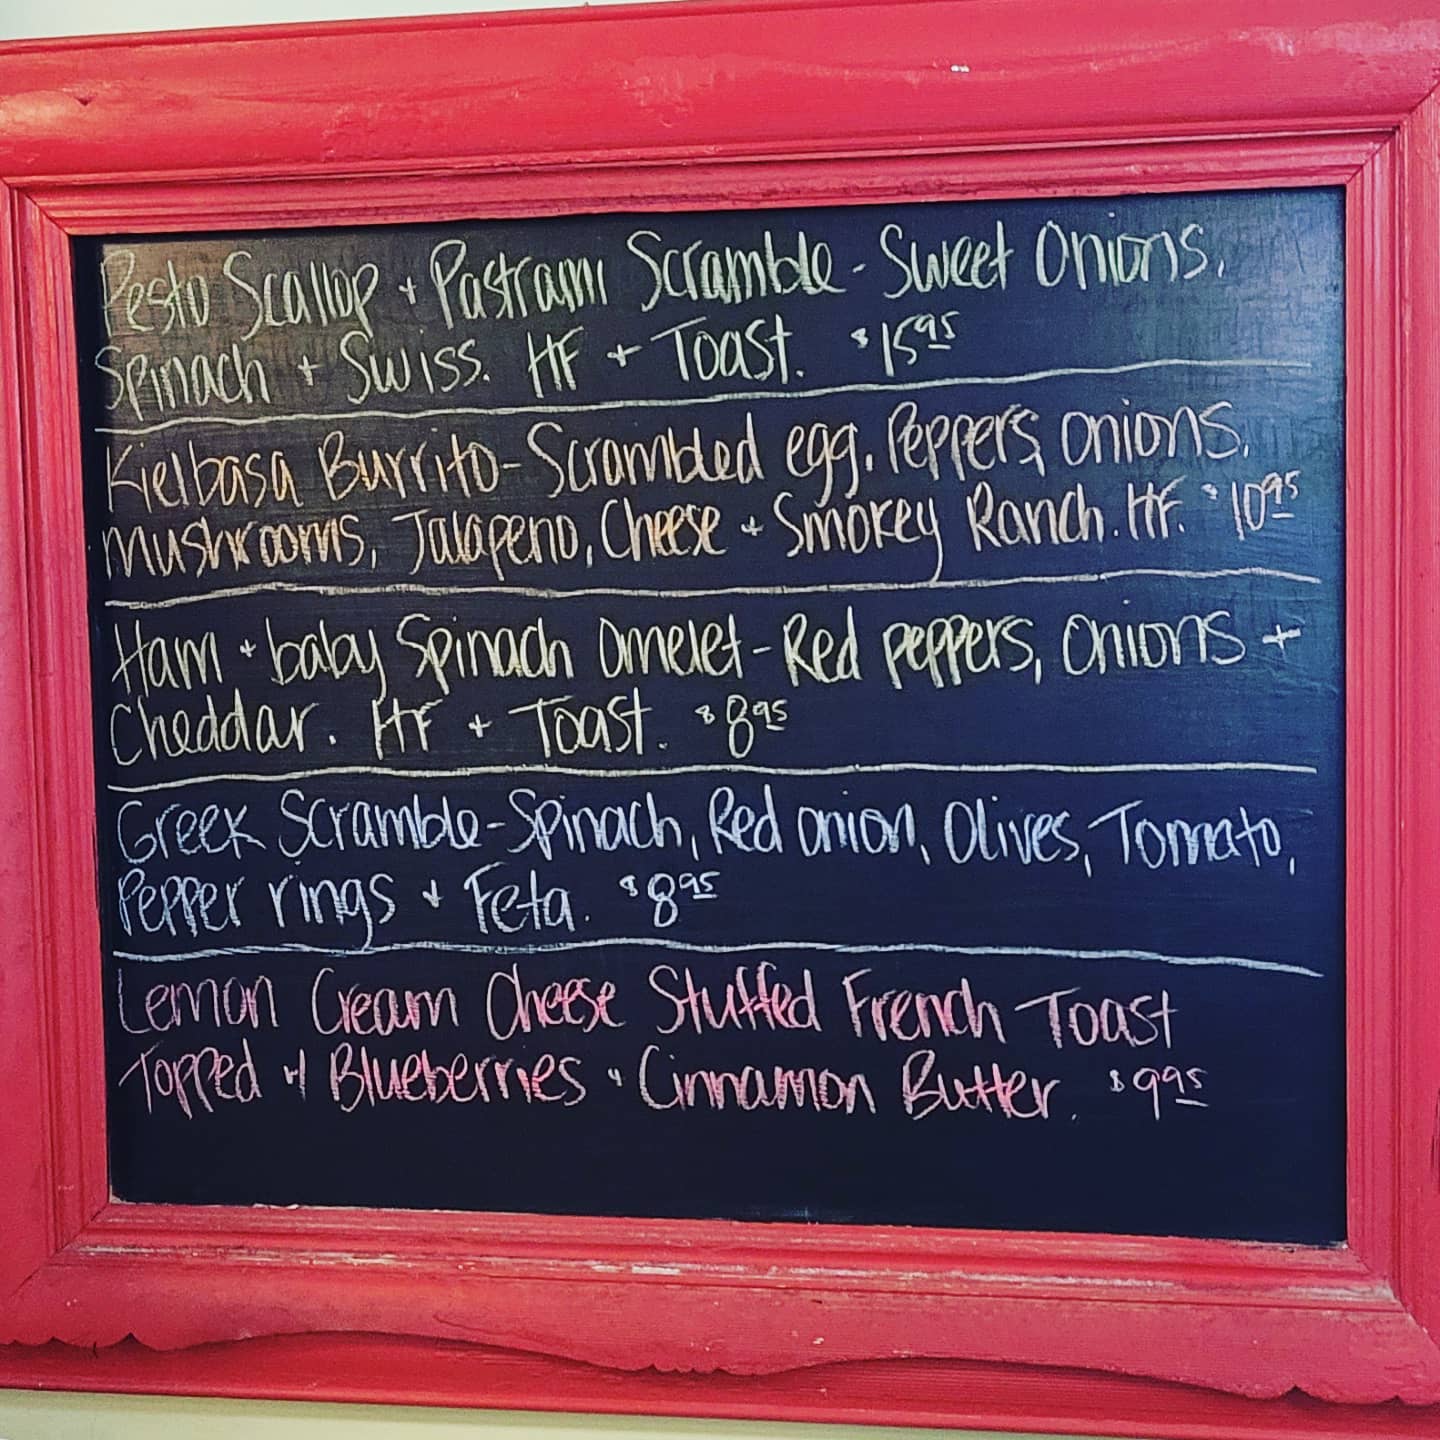 Pesto Scallop + Pastrami Scramble - Sweet Onions,
Spinach + Swiss. HF + Toast. $15.95
Kielbasa Burrito - Scrambled egg, Peppers, onions,
mushrooms, Jalapeno, Cheese + Smokey Ranch. HF. $10.95
Ham + baby Spinach Omelet - Red peppers, onions +
Cheddar. HF + Toast. $8.95
Greek Scramble - Spinach, Red onion, Olives, Tomato,
Pepper rings + Feta. $8.95
Lemon Cream Cheese Stuffed French Toast
Topped w/ Blueberries + Cinnamon Butter. $9.95